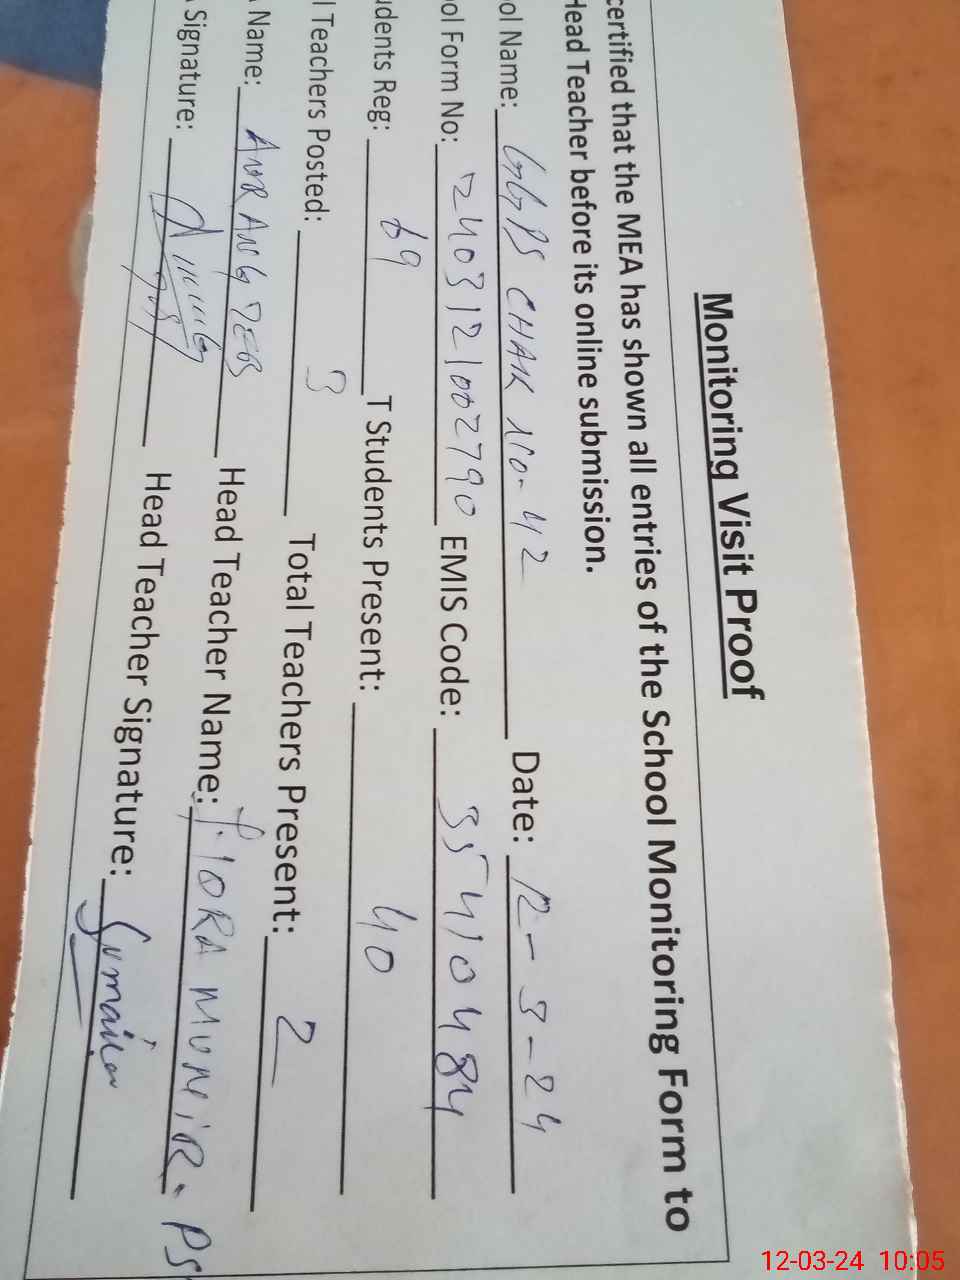 Monitoring Visit Proof
certified that the MEA has shown all entries of the School Monitoring Form to
Head Teacher before its online submission.
ol Name: GGPS CHAK NO-42 Date: 12-3-24
ol Form No: 2403121002790 EMIS Code: 35410484
udents Reg: 69 T Students Present: 40
l Teachers Posted: 3 Total Teachers Present: 2
A Name: AURANGZEB Head Teacher Name: FIORA MUNIR. PS
A Signature: Head Teacher Signature: Sumaira
12-03-24 10:05